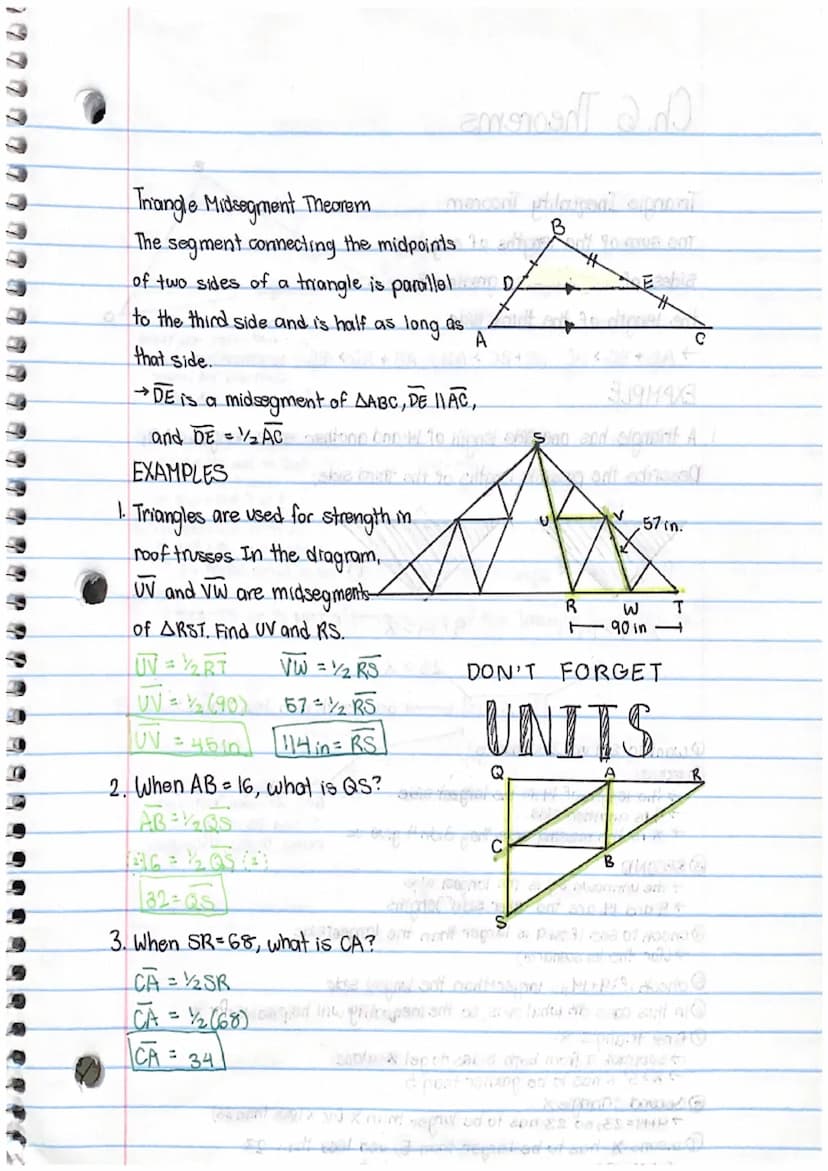 Triangle Midsegment Theorem
The segment connecting the midpoints
of two sides of a triangle is parallel
to the third side and is half as long as
that side.
→ D̅E̅ is a midsegment of △ABC, D̅E̅ || A̅C̅,
and D̅E̅ = 1/2 A̅C̅
B
D
E
A
C
EXAMPLES
1. Triangles are used for strength in
roof trusses In the diagram,
U̅V̅ and V̅W̅ are midsegments
of △RST. Find UV and RS.
S
U
V
57 in.
R
W
T
90 in
U̅V̅ = 1/2 R̅T̅
U̅V̅ = 1/2 (90)
U̅V̅ = 45 in
V̅W̅ = 1/2 R̅S̅
57 = 1/2 R̅S̅
114 in = R̅S̅
DON'T FORGET
UNITS
2. When AB = 16, what is QS?
A̅B̅ = 1/2 Q̅S̅
16 = 1/2 Q̅S̅
32 = Q̅S̅
Q
A
R
C
B
S
3. When SR = 68, what is CA?
C̅A̅ = 1/2 SR
C̅A̅ = 1/2 (68)
C̅A̅ = 34